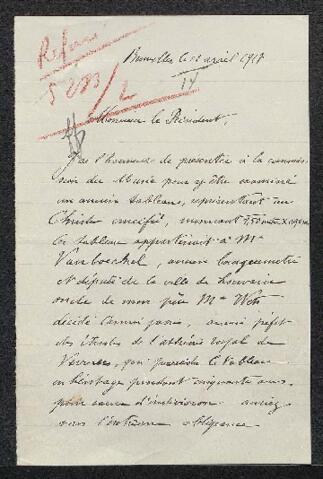 Refusé
Bruxelles le 12 avril 1918
5233/2
14
Monsieur le Président,
J'ai l'honneur de présenter à la commis-
sion du Musée pour y être examiné
un ancien tableau, représentant un
Christ crucifié, mesurant
Ce tableau appartenait à Mr
Van Boeckel, ancien bourgmestre
et député de la ville de Louvain
oncle de mon père Mr
décédé l'année passée, ancien préfet
des études de l'athénée royal de
Verviers, qui posséda le tableau
en héritage pendant cinquante ans,
pour cause d'indivision. auriez
vous l'extrême obligeance